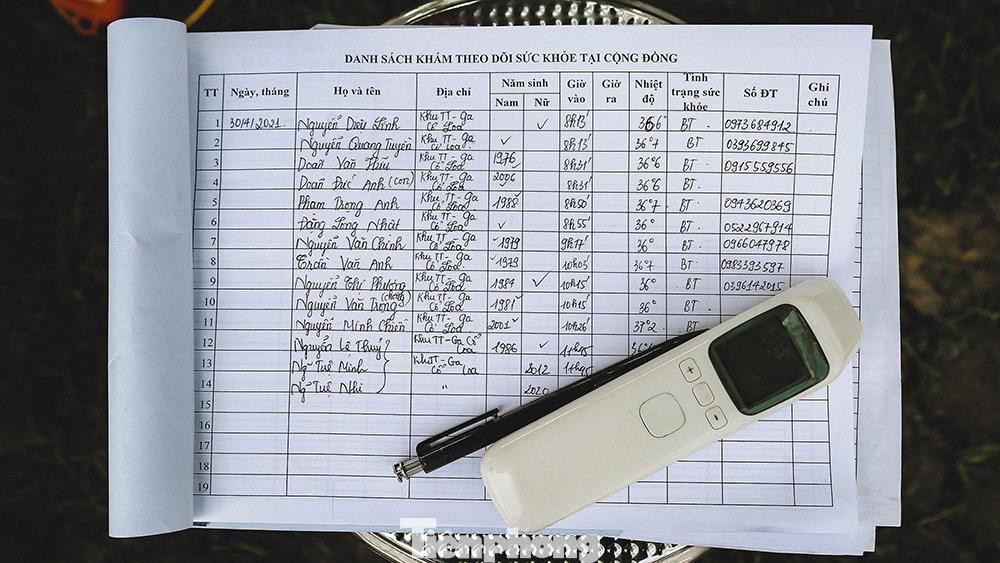 DANH SÁCH KHÁM THEO DÕI SỨC KHỎE TẠI CỘNG ĐỒNG
TT Ngày, tháng Họ và tên Địa chỉ Năm sinh Nam Nữ Giờ vào Giờ ra Nhiệt độ Tình trạng sức khỏe Số ĐT Ghi chú
1 30/4/2021 Nguyễn Diệu Linh Khu TT - Ga Cổ Loa ✓ 8h13' 36°6 BT 0973684912
2 Nguyễn Quang Tuyên Khu TT - Ga Cổ Loa ✓ 8h13' 36°7 BT 0393699845
3 Doãn Văn Khu TT - Ga Cổ Loa 1976 8h31' 36°6 BT 0915559556
4 Doãn Đức Anh (con) Khu TT - Ga Cổ Loa 2006 8h31' 36°6 BT
5 Phạm Trọng Anh Khu TT - Ga Cổ Loa 1988 8h50' 36°7 BT 0943620369
6 Đặng Long Nhật Khu TT - Ga Cổ Loa ✓ 8h55' 36° BT 0522967914
7 Nguyễn Văn Chính Khu TT - Ga Cổ Loa 1979 9h17' 36° BT 0966047978
8 Trần Văn Anh Khu TT - Ga Cổ Loa 1979 10h05' 36°7 BT 0983393597
9 Nguyễn Thị Phượng Khu TT - Ga Cổ Loa 1984 ✓ 10h15' 36° BT 0396142015
10 Nguyễn Văn Trọng (chồng) Khu TT - Ga Cổ Loa 1981 10h15' 36° BT
11 Nguyễn Minh Chiến Khu TT - Ga Cổ Loa 2001 10h26' 37°2 BT
12 Nguyễn Lệ Thuý Khu TT - Ga Cổ Loa 1986 ✓ 11h15
13 Ng Tuệ Minh Khu TT - Ga Cổ Loa 2012 11h15
14 Ng Tuệ Nhi " 2020
15
16
17
18
19
+
-
Tiền phong